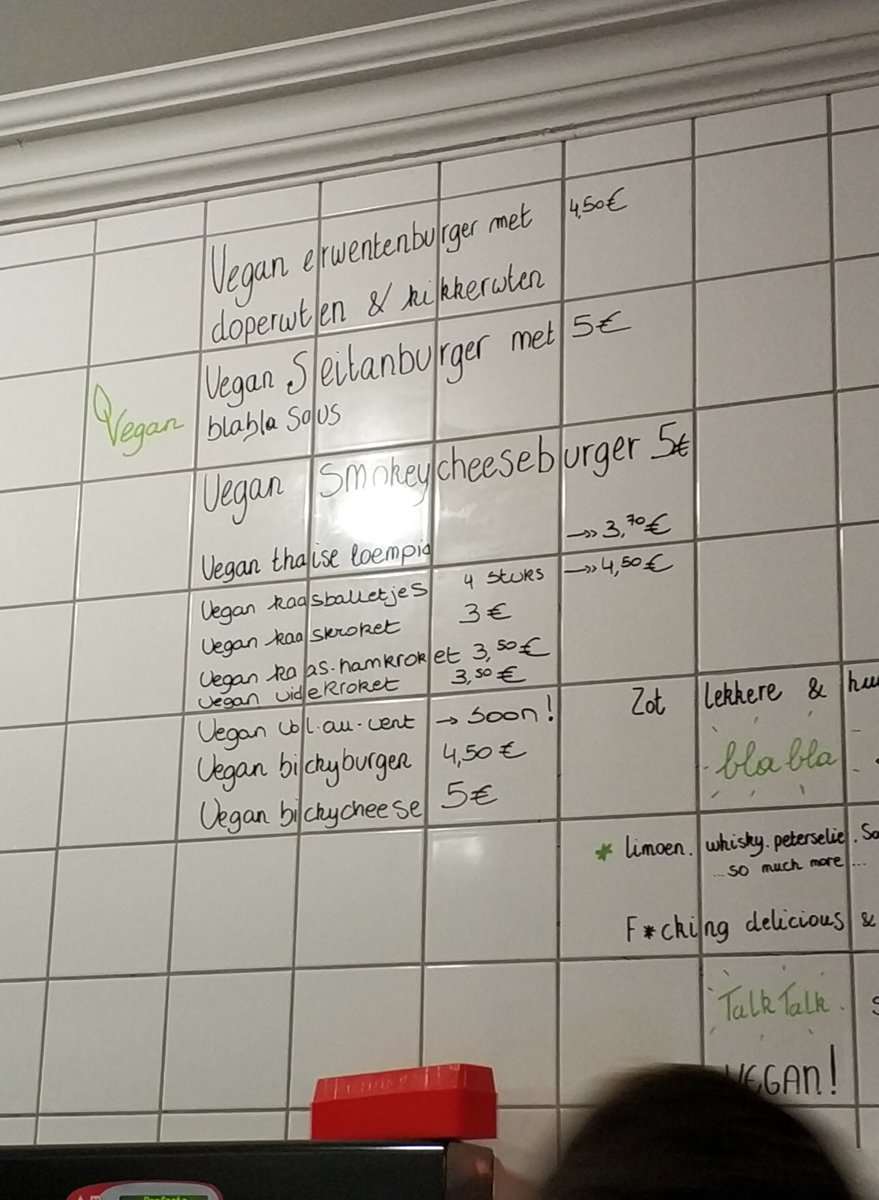 Vegan erwentenburger met 4,50€
doperwten & kikkerwten
Vegan Seitanburger met 5€
blabla sous
Vegan
Vegan Smokeycheeseburger 5€
Vegan thaise loempia ->> 3,70€
Vegan kaasballetjes 4 stuks ->> 4,50€
Vegan kaaskroket 3€
Vegan kaas-hamkroket 3,50€
Vegan videkroket 3,50€
Vegan vol-au-vent → soon!
Vegan bickyburger 4,50€
Vegan bickycheese 5€
Zot lekkere &
bla bla
* limoen. whisky. peterselie.
...so much more...
F*cking delicious &
Talk Talk.
VEGAN!